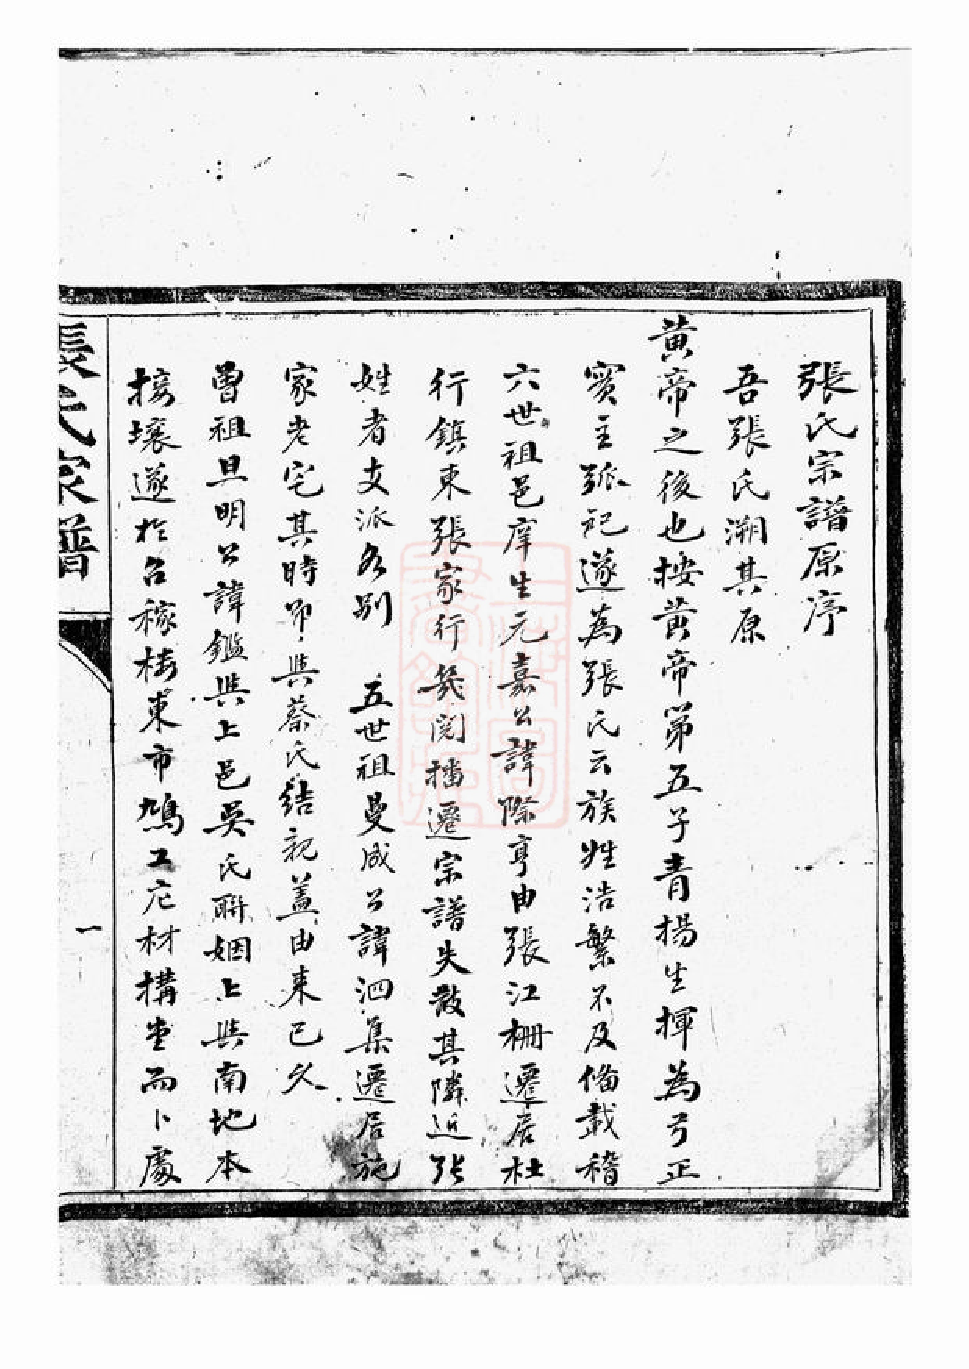 張氏宗譜原序
吾張氏溯其原
黄帝之後也按黄帝第五子青揚生揮為弓正
實主弧祀遂為張氏云族姓浩繁不及俻載稽
六世祖邑庠生元嘉公諱際亨由張江栅遷居杜
行鎮東張家行幾閱播遷宗譜失散其隣近張
姓者支派各别 五世祖曼成公諱泗集遷居施
家老宅其時即與蔡氏結親盖由來已久
曽祖旦明公諱鑑與上邑吳氏聨姻上與南地本
接壤遂於召稼楼東市鳩工庀材構堂而卜處
張氏家譜
一